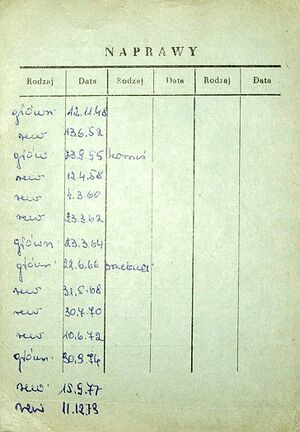 NAPRAWY
Rodzaj Data Rodzaj Data Rodzaj Data
główn 12.11.48
rew 13.6.52
główn 23.9.55
rew 12.4.58
rew 4.3.60
rew 23.3.62
główn. 23.3.64
główn. 22.6.66
rew 31.5.68
rew 30.7.70
rew 10.6.72
główn. 30.9.74
rew 15.9.77
rew 11.12.79